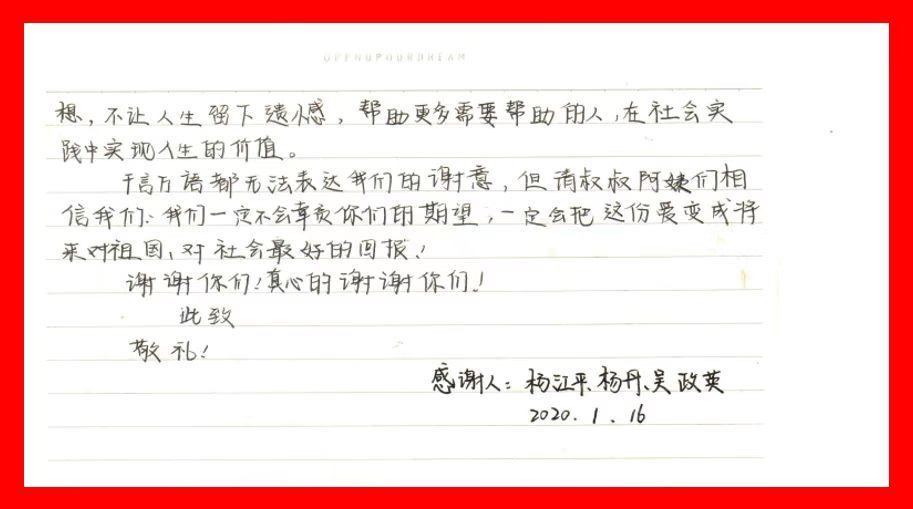 OPENUPOURDREAM
想，不让人生留下遗憾，帮助更多需要帮助的人，在社会实
践中实现人生的价值。
千言万语都无法表达我们的谢意，但请叔叔阿姨们相
信我们：我们一定不会辜负你们的期望，一定会把这份爱变成将
来对祖国、对社会最好的回报！
谢谢你们！真心的谢谢你们！
此致
敬礼！
感谢人：杨江平、杨丹、吴政英
2020.1.16